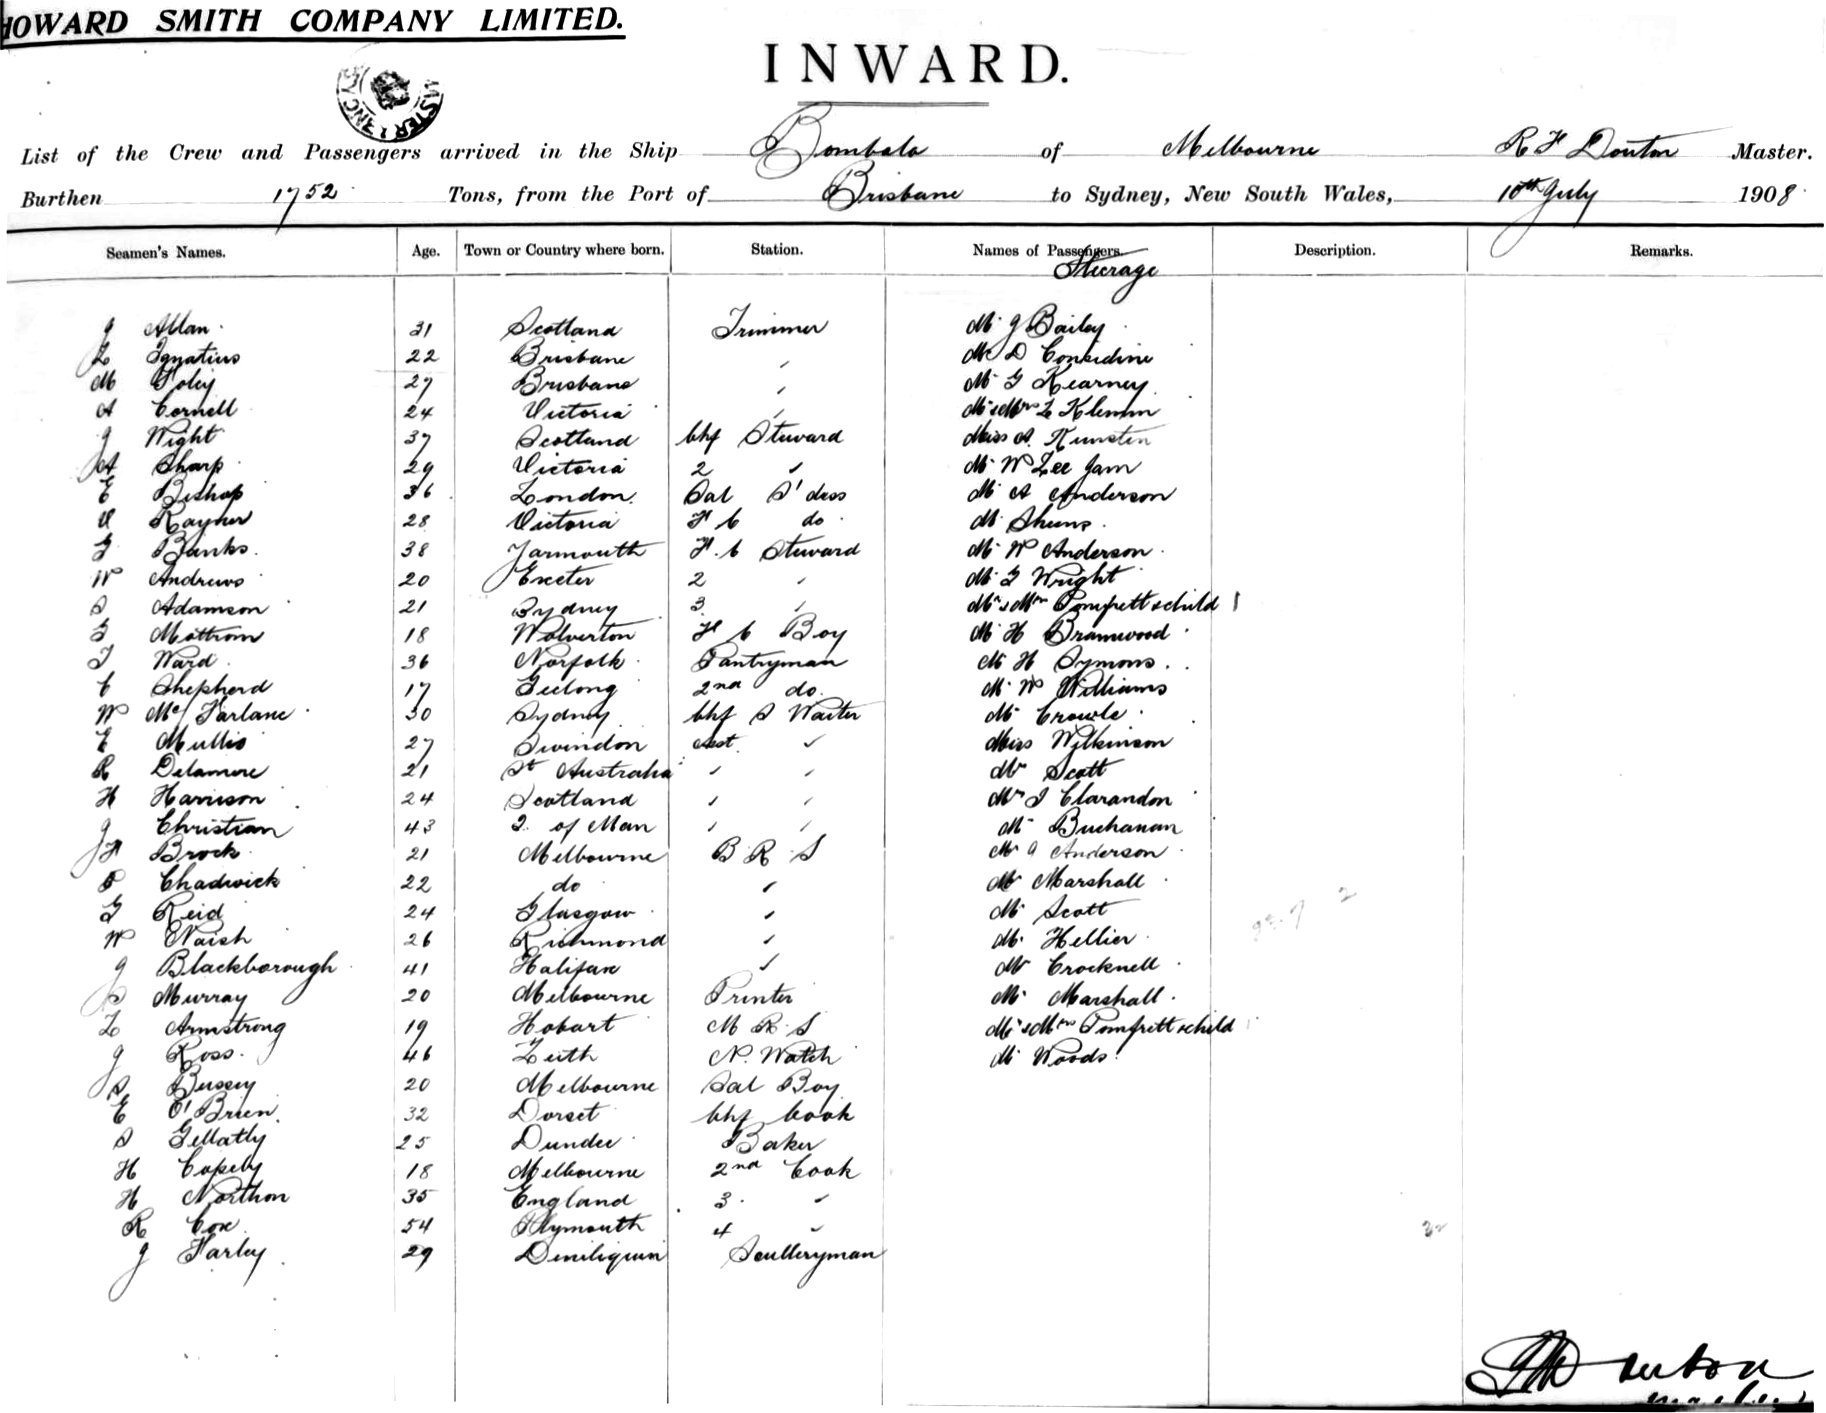 HOWARD SMITH COMPANY LIMITED.
INWARD.
List of the Crew and Passengers arrived in the Ship Bombala of Melbourne R F Douton Master.
Burthen 1752 Tons, from the Port of Brisbane to Sydney, New South Wales, 10th July 1908
Seamen's Names. Age. Town or Country where born. Station. Names of Passengers. Description. Remarks.
Steerage
J Allan 31 Scotland Trimmer Mr J Bailey
L Ignatius 22 Brisbane " Mr D Considine
M Foley 27 Brisbane " Mr G Kearney
A Cornell 24 Victoria " Mr & Mrs L Klemm
J Wight 37 Scotland Chf Steward Miss A. Kunsten
A Sharp 29 Victoria 2 " Mr W Lee Jam
E Bishop 36 London Sal S'dess Mr A Anderson
U Rayner 28 Victoria F C do Mr Shums
G Banks 38 Yarmouth F.C Steward Mr W Anderson
W Andrews 20 Exeter 2 " Mr G Wright
S Adamson 21 Sydney 3 " Mr & Mrs Pomfrett & child 1
G Mottrom 18 Wolverton F C Boy Mr H Bramwood
T Ward 36 Norfolk Pantryman Mr H Symons
C Shepherd 17 Geelong 2nd do. Mr W Williams
W McFarlane 30 Sydney Chf S Waiter Mr Crowle
E Mullis 27 Swindon Asst " Miss Wilkinson
R Delamore 21 St Australia " " Mr Scott
H Harrison 24 Scotland " " Mrs I Clarandon
J Christian 43 I. of Man " " Mr Buchanan
H Brock 21 Melbourne B R S Mr J Anderson
P Chadwick 22 do " Mr Marshall
G Reid 24 Glasgow " Mr Scott
W Naish 26 Richmond " Mr Hellier
J Blackborough 41 Halifax " Mr Crocknell
S Murray 20 Melbourne Printer Mr Marshall
L Armstrong 19 Hobart M R S Mr & Mrs Pomfrett & child
J Ross 46 Leith N. Watch Mr Woods
S Bussey 20 Melbourne Sal Boy
E O'Brien 32 Dorset Chf Cook
S Gellatly 25 Dundee Baker
H Copely 18 Melbourne 2nd Cook
H Northon 35 England 3 "
R Cox 54 Plymouth 4 "
J Farley 29 Deniliquin Sculleryman